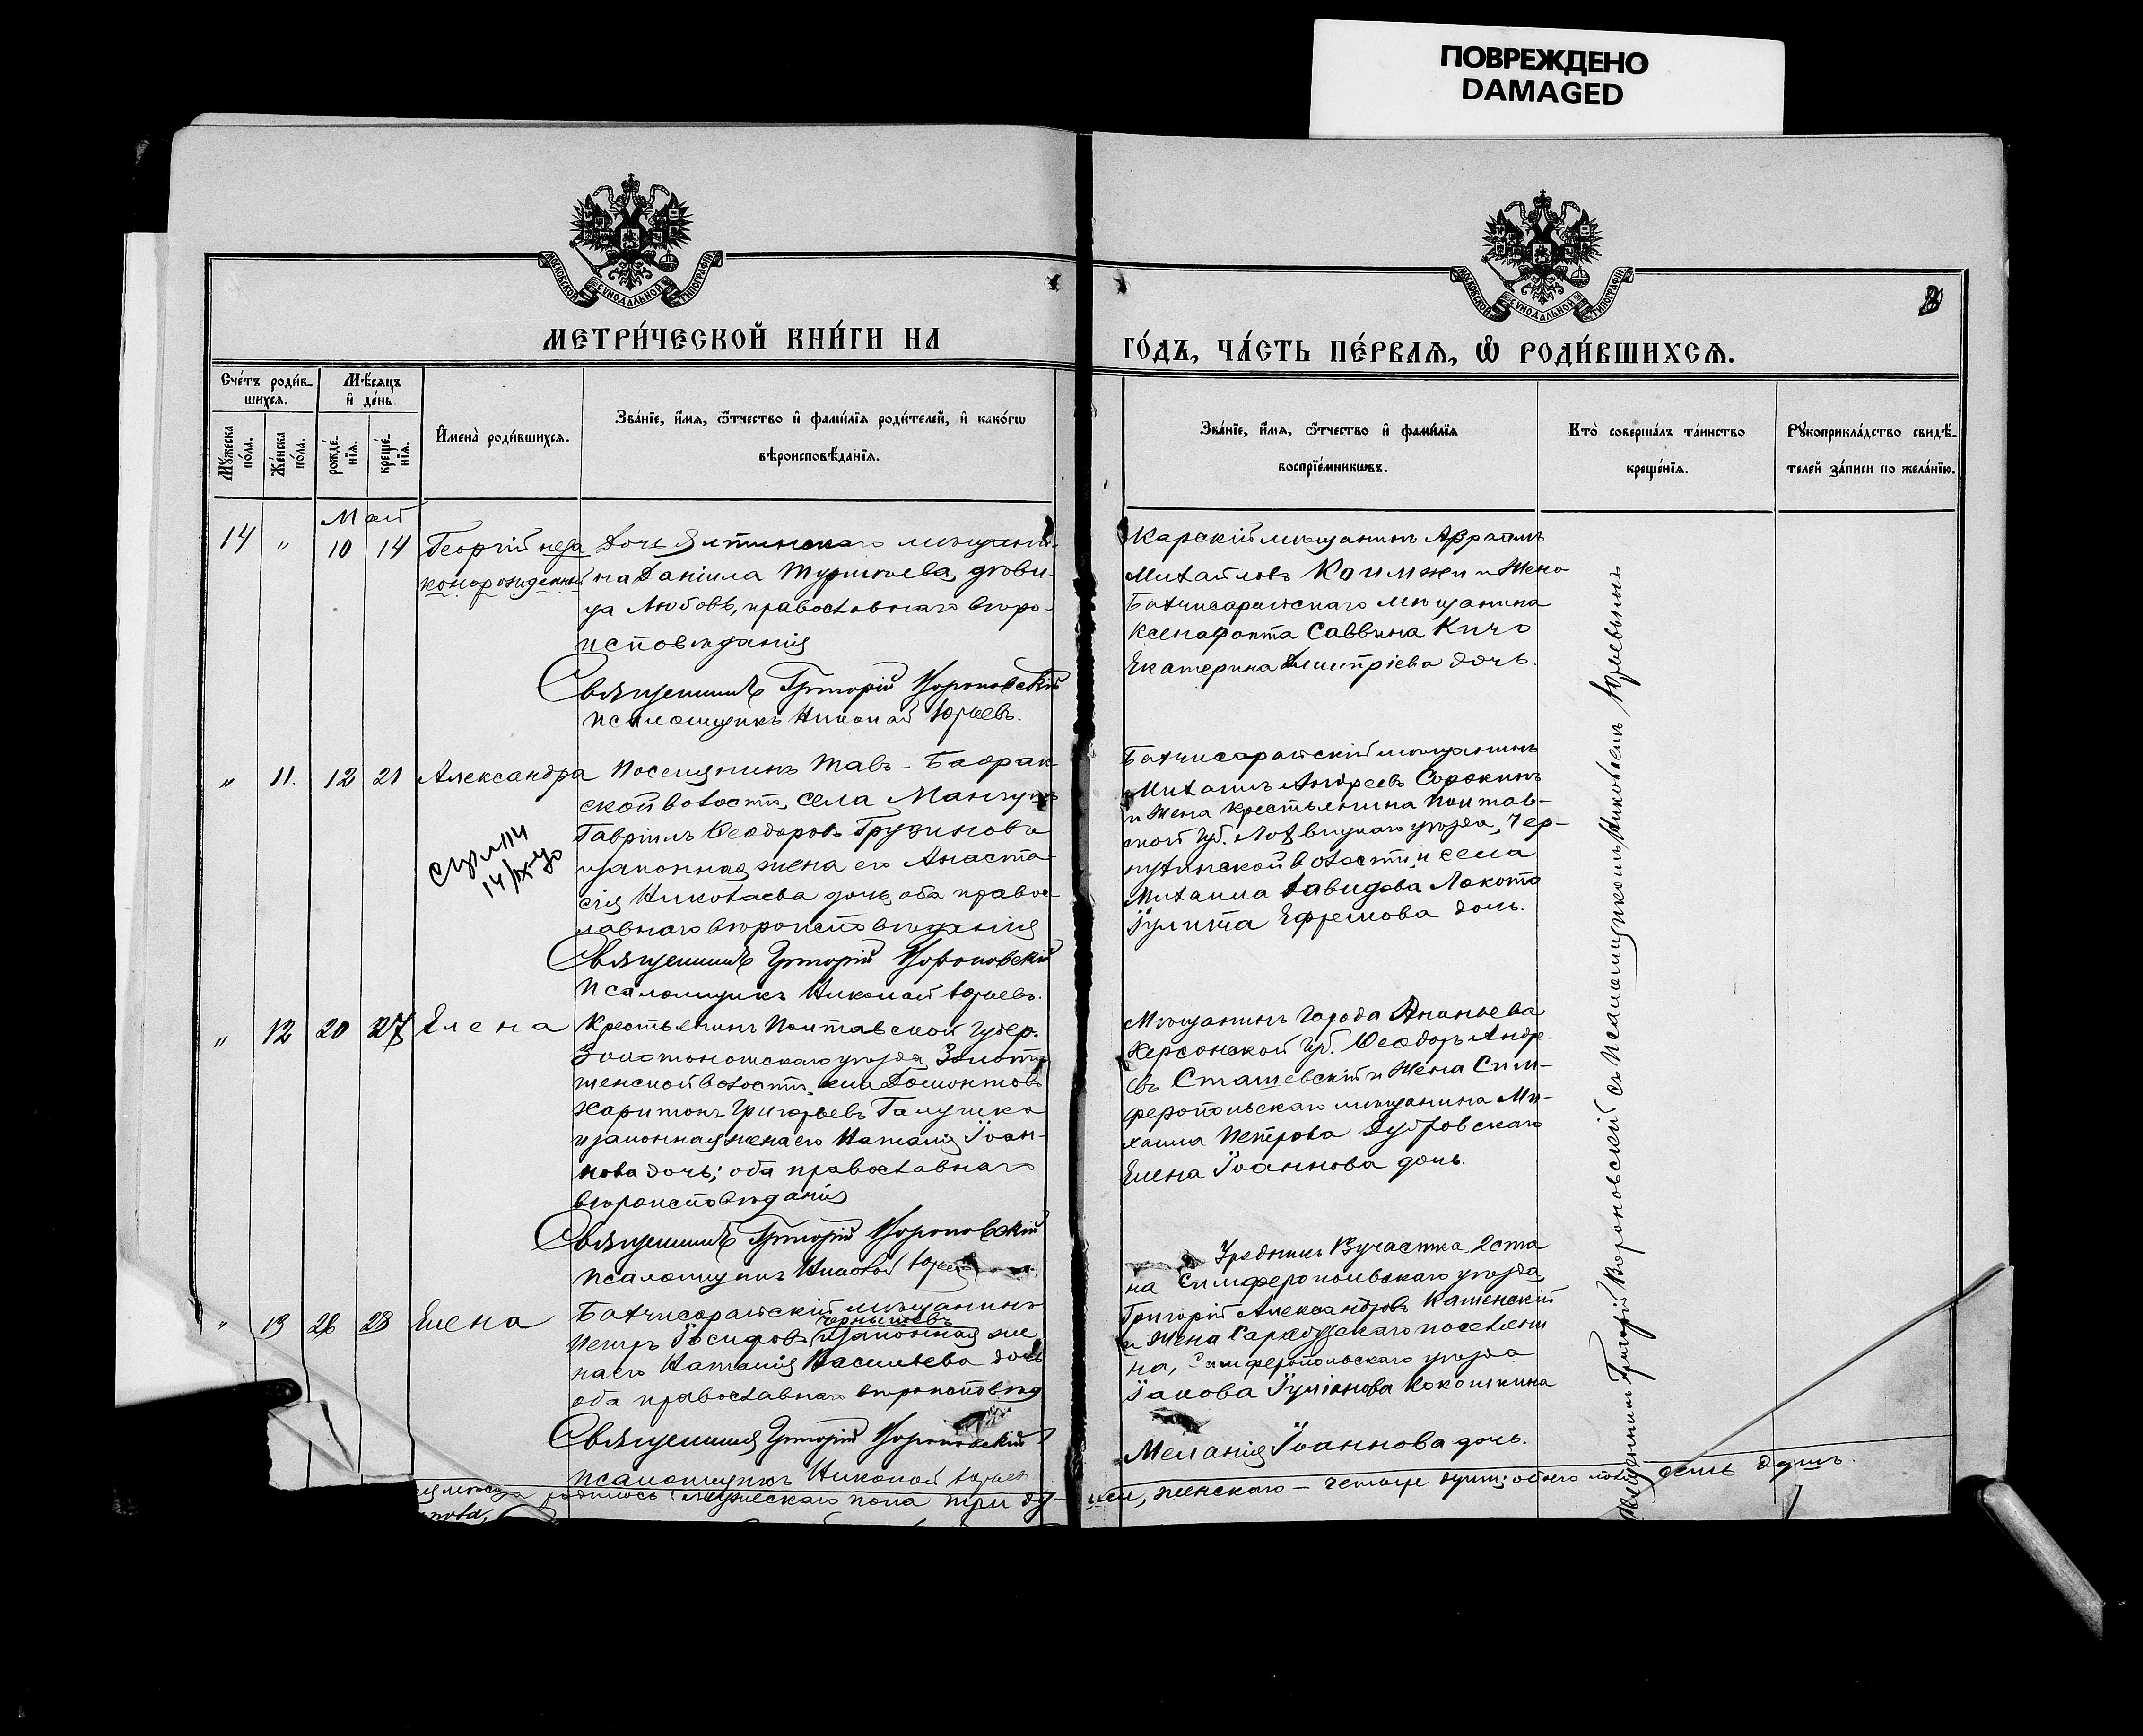 ПОВРЕЖДЕНО
DAMAGED
МОСКОВСКОЙ СѴНОДАЛЬНОЙ ТИПОГРАФІИ
МОСКОВСКОЙ СѴНОДАЛЬНОЙ ТИПОГРАФІИ
МЕТРИ́ЧЕСКОЙ КНИ́ГИ НА
ГО́ДЪ, ЧА́СТЬ ПЕ́РВАѦ, Ѽ РОДИ́ВШИХСѦ.
Сче́тъ роди́в-
шихсѧ.
Мѣ́сѧцъ
и҆ де́нь
Мꙋ́жеска по́ла.
Же́нска по́ла.
рожде́-
нїѧ.
креще́-
нїѧ.
И҆мена̀ роди́вшихсѧ.
Зва́нїе, и҆́мѧ, ѻ҆́тчество и҆ фами́лїѧ роди́телей, и҆ како́гѡ
вѣроисповѣ́данїѧ.
Зва́нїе, и҆́мѧ, ѻ҆́тчество и҆ фами́лїѧ
воспрїе́мникѡвъ.
Кто̀ соверша́лъ та́инство
креще́нїѧ.
Рꙋкоприкла́дство свидѣ́-
телей за́писи по жела́нїю.
Май
14 " 10 14 Георгій неза-
конорожденный
Дочь Ялтинскаго мѣщани-
на Даніила дѣви-
ца Любовь, православнаго вѣро-
исповѣданія
Священникъ Григорій Вороновскій
псаломщикъ Николай Юрьевъ.
Карскій мѣщанинъ Авраамъ
Михайловъ и жена
Бахчисарайскаго мѣщанина
Ксенофонта Саввина Кичо
Екатерина Димитріева дочь.
" 11. 12 21 Александра
Поселянинъ Тавъ-Бадрак-
ской волости, села Мангушъ
Гавріилъ Ѳеодоровъ Грузиновъ
и законная жена его Анаста-
сія Николаева дочь, оба право-
славнаго вѣроисповѣданія
Священникъ Григорій Вороновскій
Псаломщикъ Николай Юрьевъ.
Бахчисарайскій мѣщанинъ
Михаилъ Андреевъ Сорокинъ
и жена крестьянина Полтав-
ской губ. Лохвицкаго уѣзда, Чер-
нухинской волости и села
Михаила Давидова Локотя
Іулита Ефремова дочь.
" 12 20 27 Елена
Крестьянинъ Полтавской губер.
Золотоношскаго уѣзда,
волости, села
Харитонъ Григорьевъ Галушка
и законная жена его Наталія Іоан-
нова дочь; оба православнаго
вѣроисповѣданія
Священникъ Григорій Вороновскій
псаломщикъ Николай Юрьевъ
Мѣщанинъ города Ананьева
Херсонской губ. Ѳеодоръ Андре-
евъ Сташевскій и жена Сим-
феропольскаго мѣщанина Ми-
хаила Петрова Дубровскаго
Елена Іоаннова дочь.
" 13 26 28 Елена
Бахчисарайскій мѣщанинъ
Чернышевъ
Петръ Іосифовъ и законная же-
на его Наталія Васильева дочь
оба православнаго вѣроисповѣд.
Священникъ Григорій Вороновскій
псаломщикъ Николай Юрьев
Урядникъ участка 2 ста-
на Симферопольскаго уѣзда,
Григорій Александровъ Каменскій
и жена поселяни-
на, Симферопольскаго уѣзда
Іакова Іуліанова Кокошкина
Меланія Іоаннова дочь.
Священникъ Григорій Вороновскій съ Псаломщикомъ Николаемъ Юрьевымъ
мѣсяца родилось: мужескаго пола три ду-
ши, женскаго – четыре души; обоего пола семь душъ.
пола,